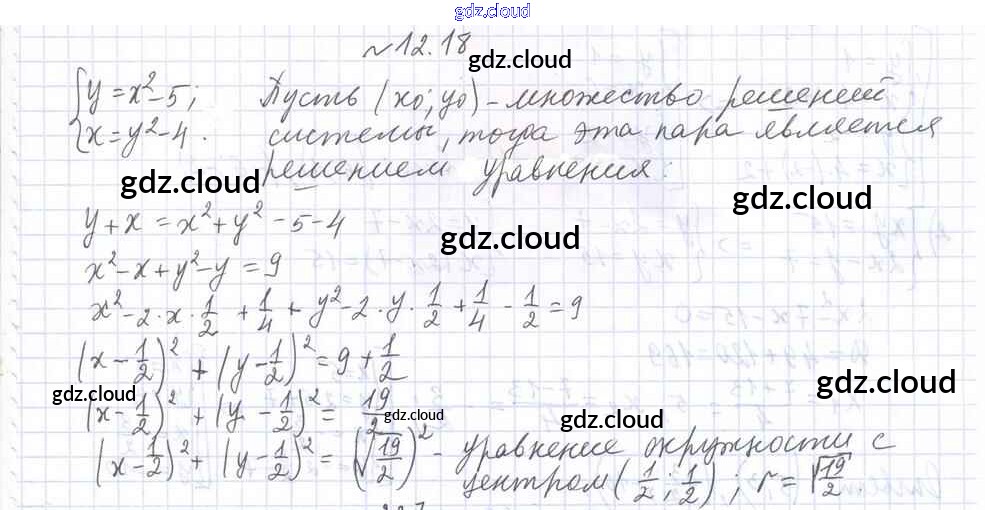 gdz.cloud
№12.18
gdz.cloud
{y = x² - 5; Пусть (x₀; y₀) - множество решений
{x = y² - 4. системы, тогда эта пара является
решением уравнения:
gdz.cloud
gdz.cloud
y + x = x² + y² - 5 - 4
gdz.cloud
x² - x + y² - y = 9
x² - 2 · x · 1/2 + 1/4 + y² - 2 · y · 1/2 + 1/4 - 1/2 = 9
(x - 1/2)² + (y - 1/2)² = 9 + 1/2
gdz.cloud
gdz.cloud
(x - 1/2)² + (y - 1/2)² = 19/2
gdz.cloud
gdz.cloud
(x - 1/2)² + (y - 1/2)² = (√19/2)² - уравнение окружности с
центром (1/2; 1/2); r = √19/2.